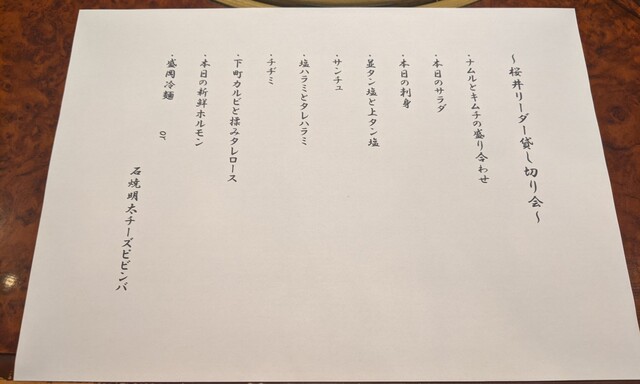 ～桜井リーダー貸し切り会～
・ナムルとキムチの盛り合わせ
・本日のサラダ
・本日の刺身
・並タン塩と上タン塩
・サンチュ
・塩ハラミとタレハラミ
・チヂミ
・下町カルビと揉みタレロース
・本日の新鮮ホルモン
・盛岡冷麺 or
石焼明太チーズビビンバ